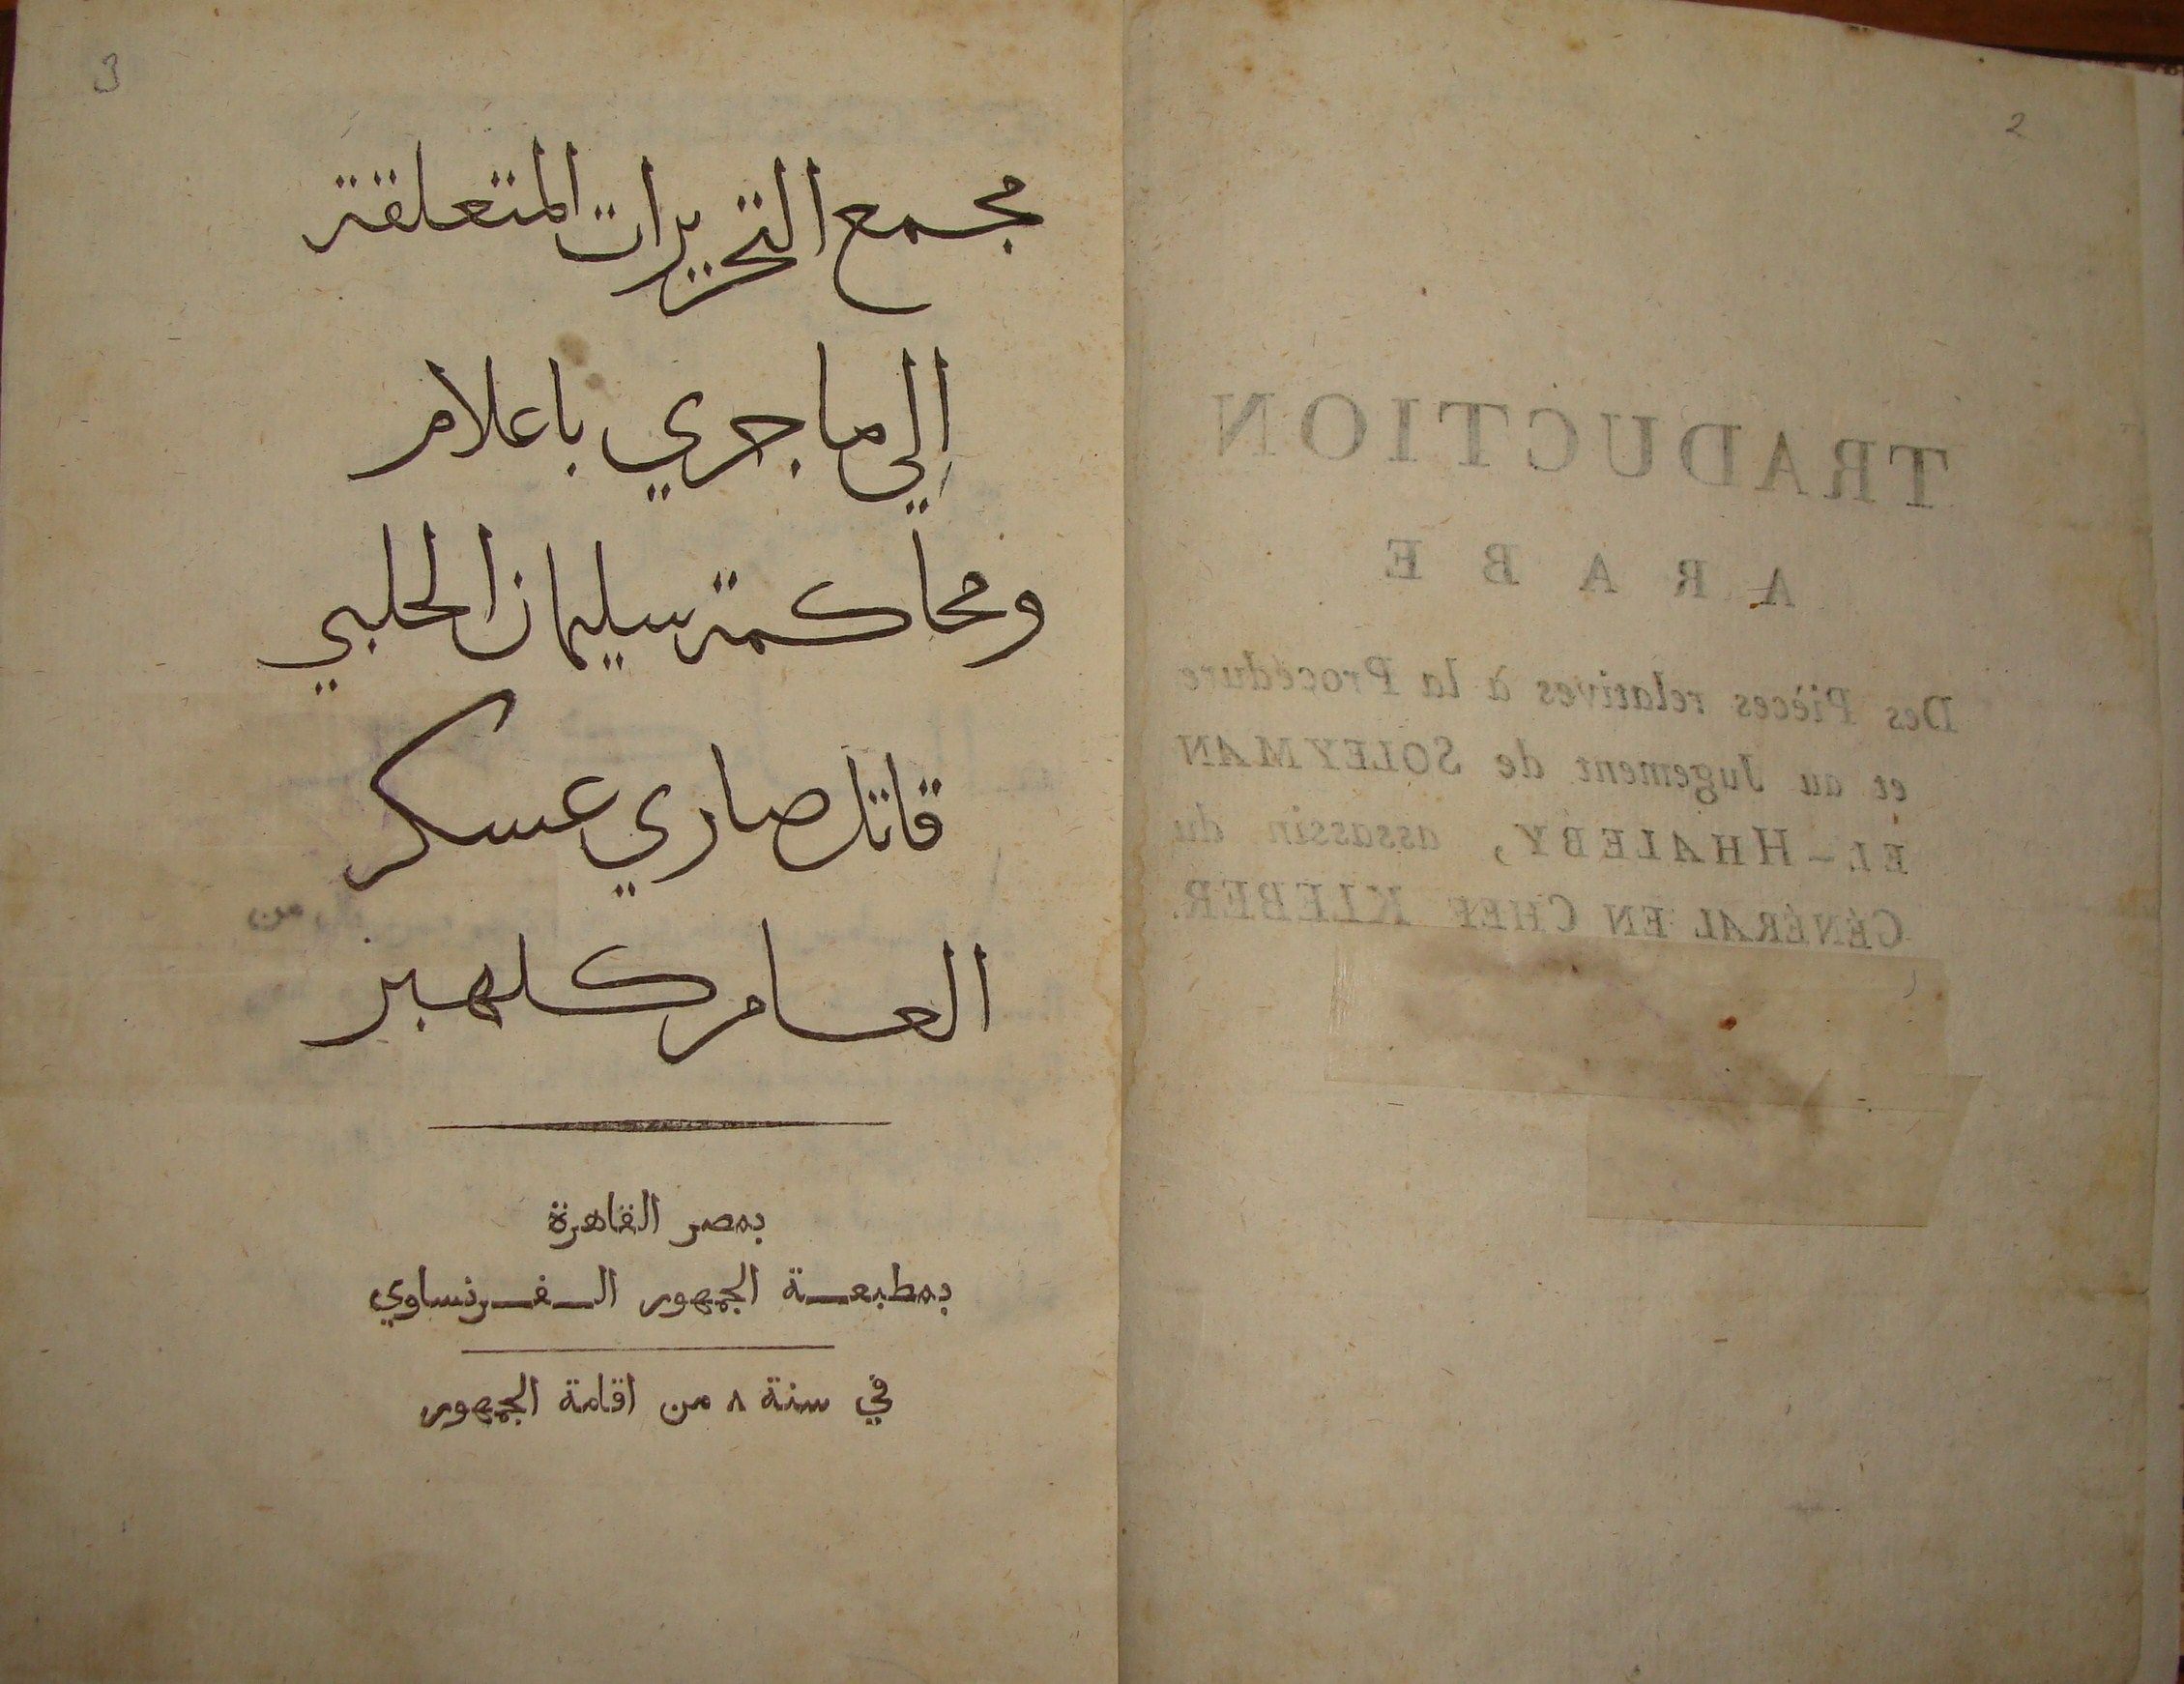 2
TRADUCTION
ARABE
Des Pièces relatives à la Procédure
et au Jugement de SOLEYMAN
EL-HHALEBY, assassin du
GÉNÉRAL EN CHEF KLEBER.
3
مجمع التحريرات المتعلقة
إلي ما جري باعلام
ومحاكمة سليمان الحلبي
قاتل صاري عسكر
العام كلهبر
بمصر القاهرة
بمطبعة الجمهور الفرنساوي
في سنة ٨ من اقامة الجمهور